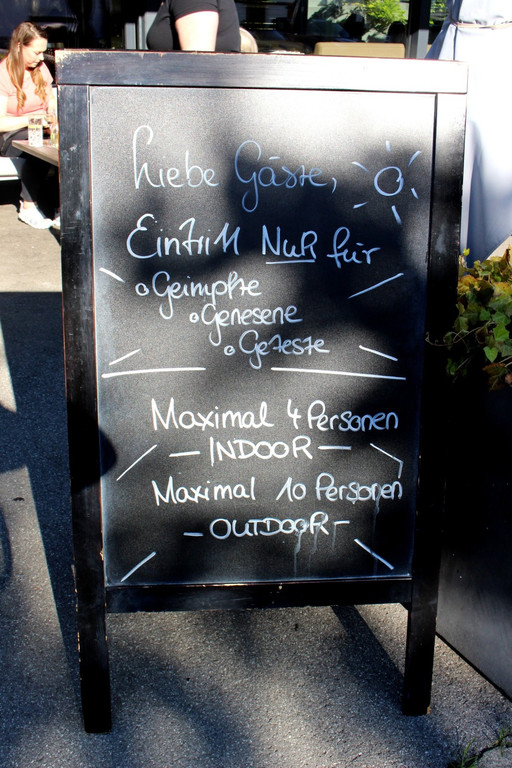 Liebe Gäste,
Eintritt NuR für
Geimpfte
Genesene
Geteste
Maximal 4 Personen
- INDOOR -
Maximal 10 Personen
- OUTDOOR -